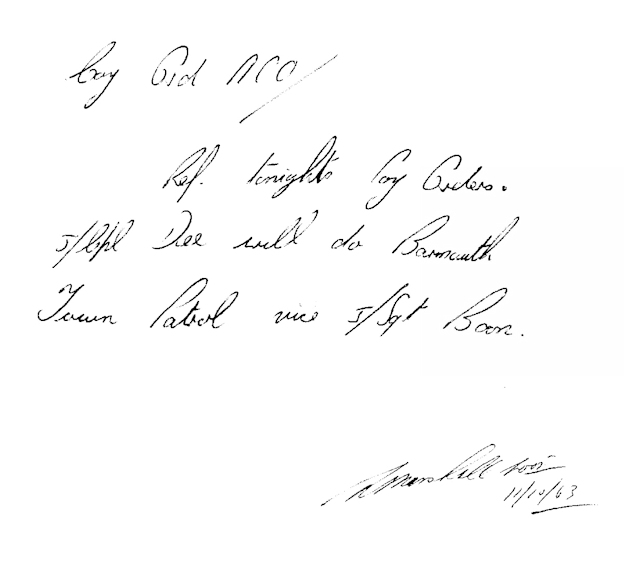 Coy Ord NCO/
Ref. tonights Coy Orders.
J/Cpl Dee will do Barmouth
Town Patrol vice J/Sgt Boon.
Marshall
11/10/63